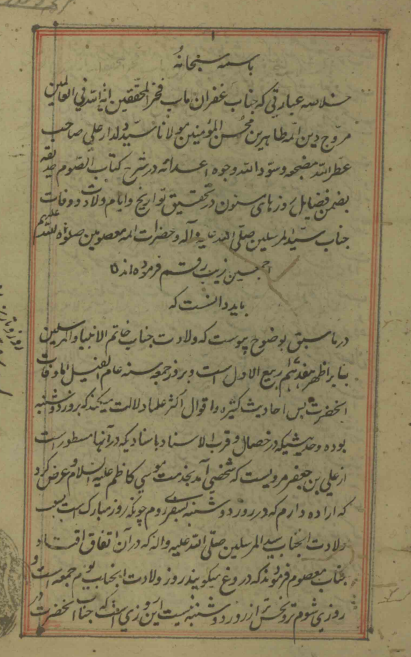 ۱
باسمه سبحانهُ
خلاصه عبارتی که جناب غفران مآب فخر المحققین آیة الله فی العالمین
مروج دین ائمه طاهرین محسن المؤمنین مولانا سید دلدار علی صاحب
عطر الله مضجعه وسود الله وجوه اعدائه در شرح کتاب الصوم حدیقه
بضمن فضایل روزهای مسنون در تحقیق تواریخ و ایام ولادت و وفات
جناب سید المرسلین صلی الله علیه وآله و حضرات ائمه معصومین صلواة الله علیهم
اجمعین زیب رقم فرموده اند
باید دانست که
در ما سبق بوضوح پیوست که ولادت جناب خاتم الانبیاء والمرسلین
بنا بر اظهر هفدهم ربیع الاول است و بروز جمعه سنه عام الفیل اما وفات
آنحضرت پس احادیث کثیره و اقوال اکثر علما دلالت میکند که بروز دوشنبه
بوده و حدیثیکه در خصال و قرب الاسناد باسنادیکه در آنها مسطور است
از علی بن جعفر مرویست که شخصی آمد بخدمت موسی کاظم علیه السلام و عرض کرد
که اراده دارم که در روز دوشنبه بسفری روم چونکه روز مبارک است بسبب
ولادت جناب سید المرسلین صلی الله علیه وآله که در آن اتفاق افتاد
جناب معصوم فرمودند که دروغ میگویند روز ولادت آنجناب یوم جمعه است و
روزی شوم و نحس تر از روز دوشنبه نیست این روزی است که جناب آنحضرت در